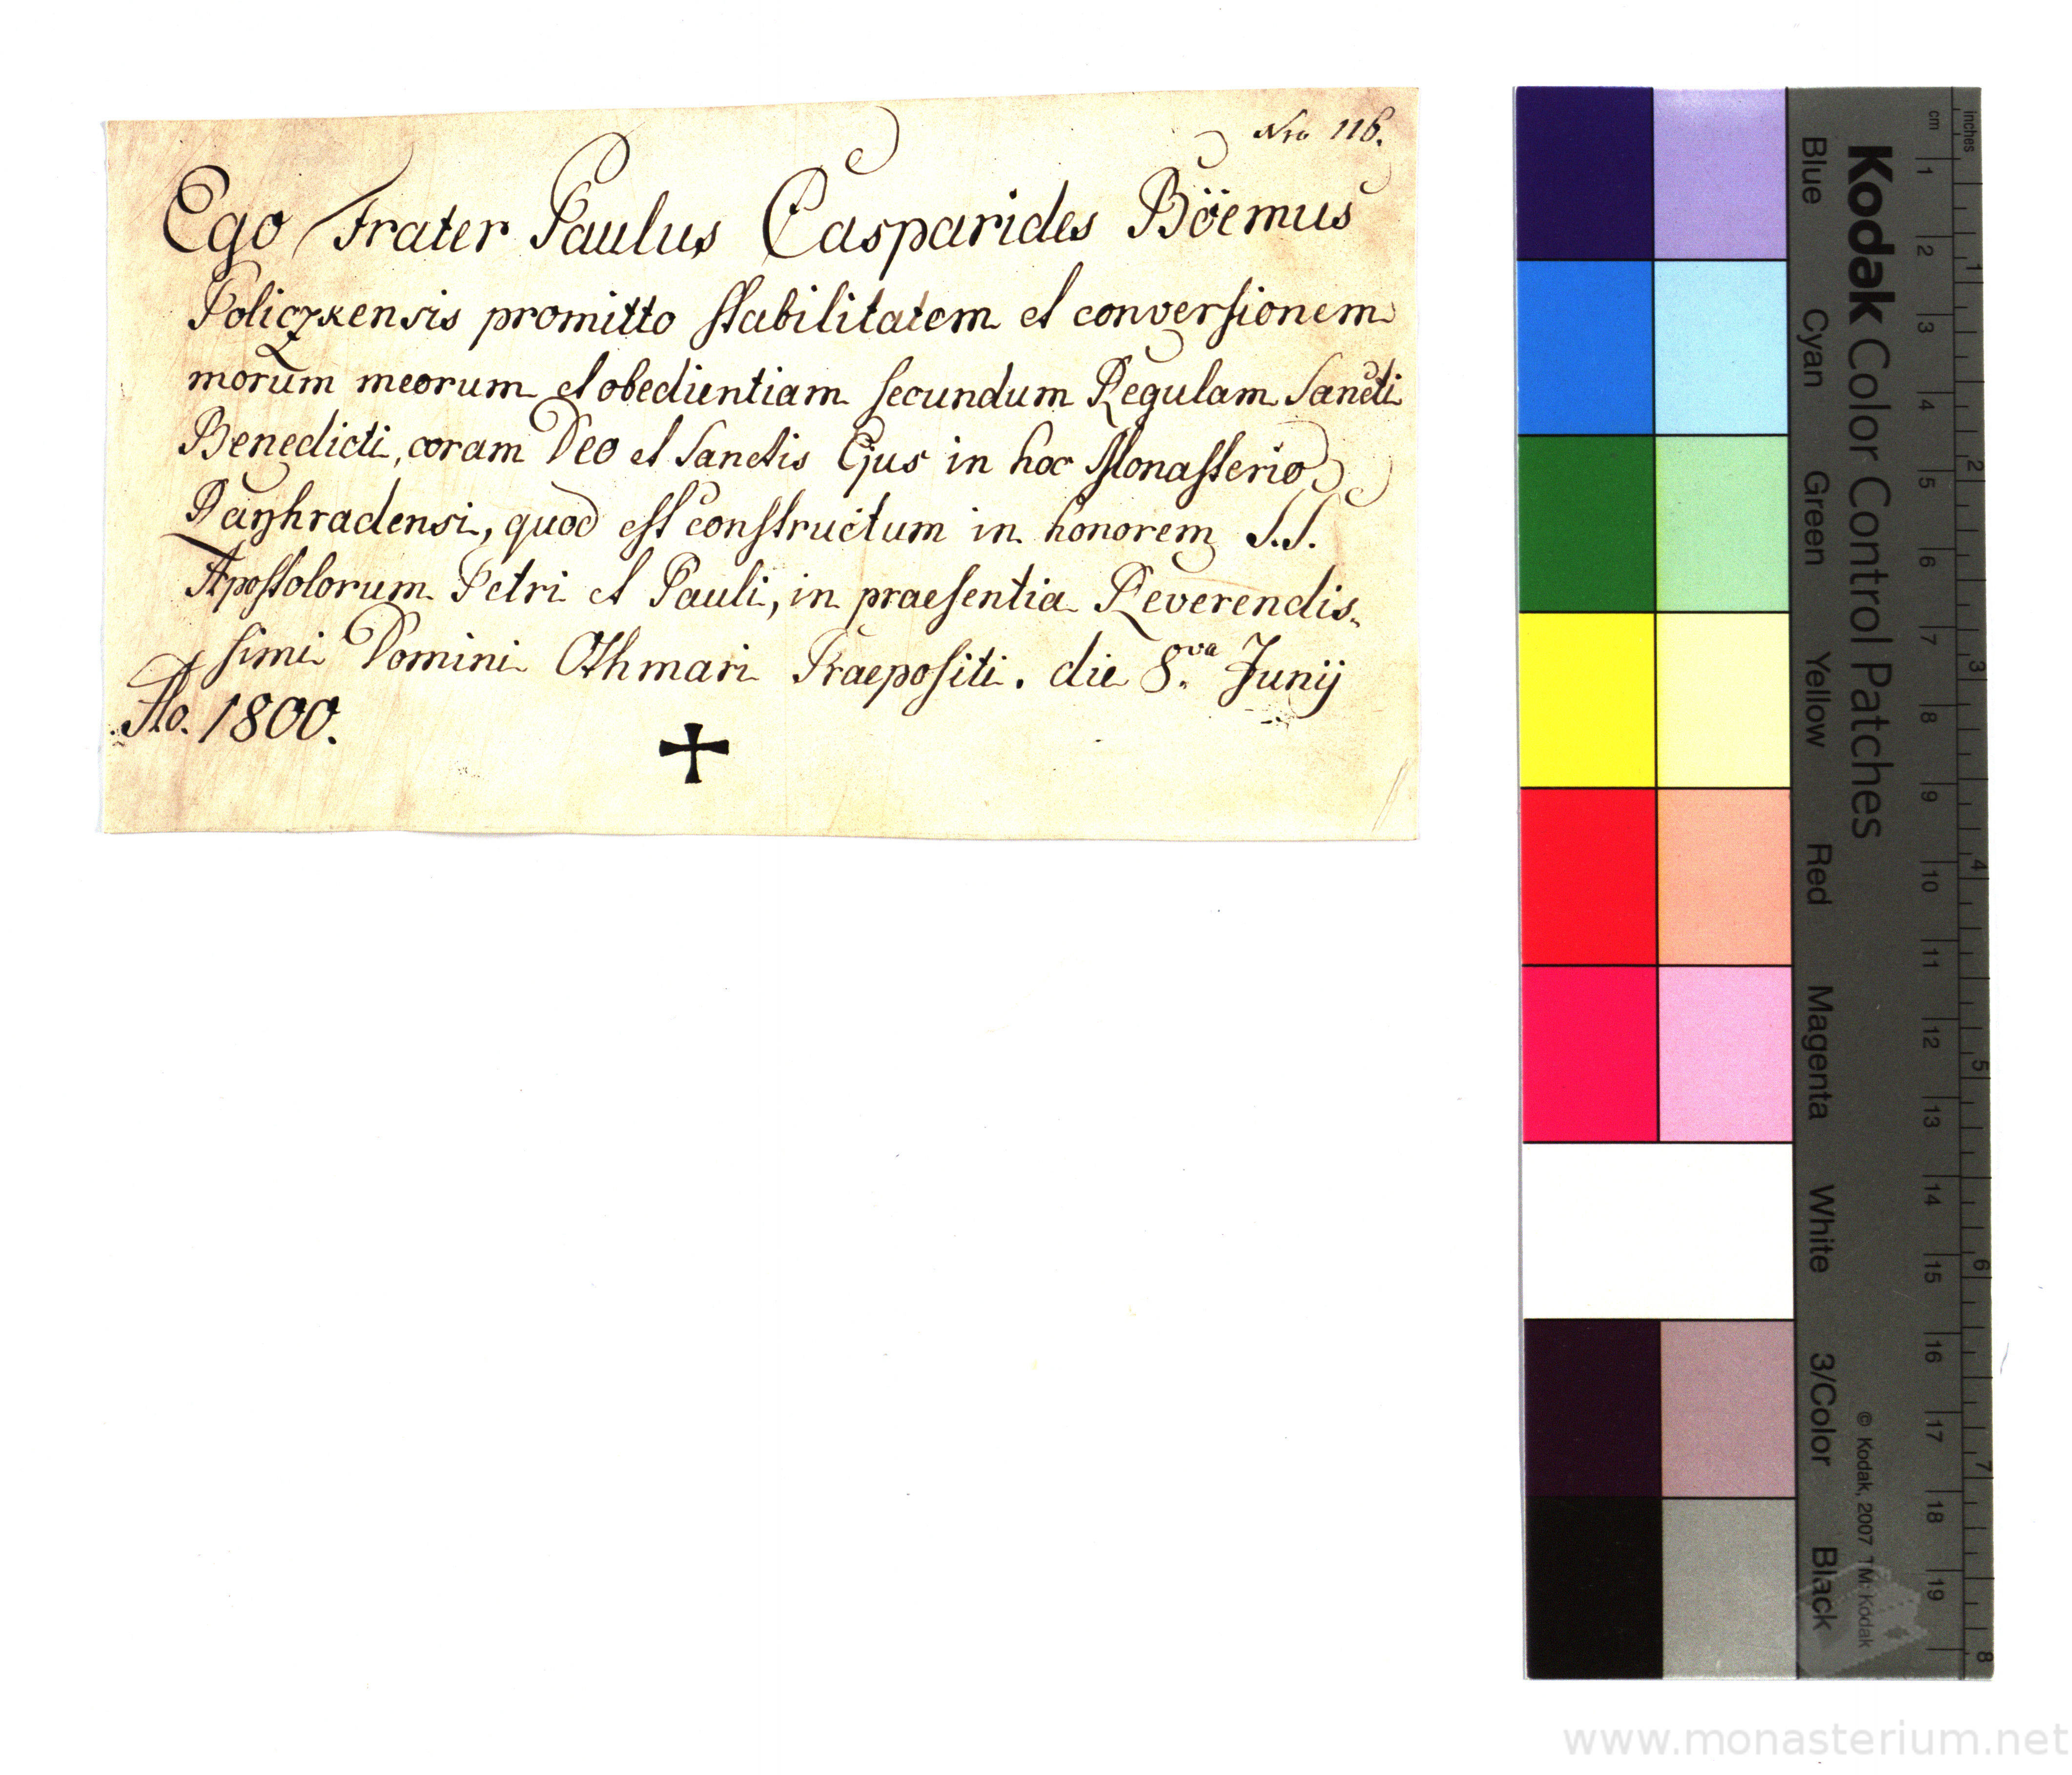 Nro 116.
Ego Frater Paulus Casparides Böemus
Policzkensis promitto stabilitatem et conversionem
morum meorum et obedientiam secundum Regulam Sancti
Benedicti, coram Deo et Sanctis Ejus in hoc Monasterio
Rayhradensi, quod est constructum in honorem S.S.
Apostolorum Petri et Pauli, in praesentia Reverendis„
simi Domini Othmari Praepositi. die 8.va Junij
Ao. 1800.
Kodak Color Control Patches
Blue Cyan Green Yellow Red Magenta White 3/Color Black
© Kodak, 2007 TM: Kodak
cm 1 2 3 4 5 6 7 8 9 10 11 12 13 14 15 16 17 18 19
inches 1 2 3 4 5 6 7 8
www.monasterium.net